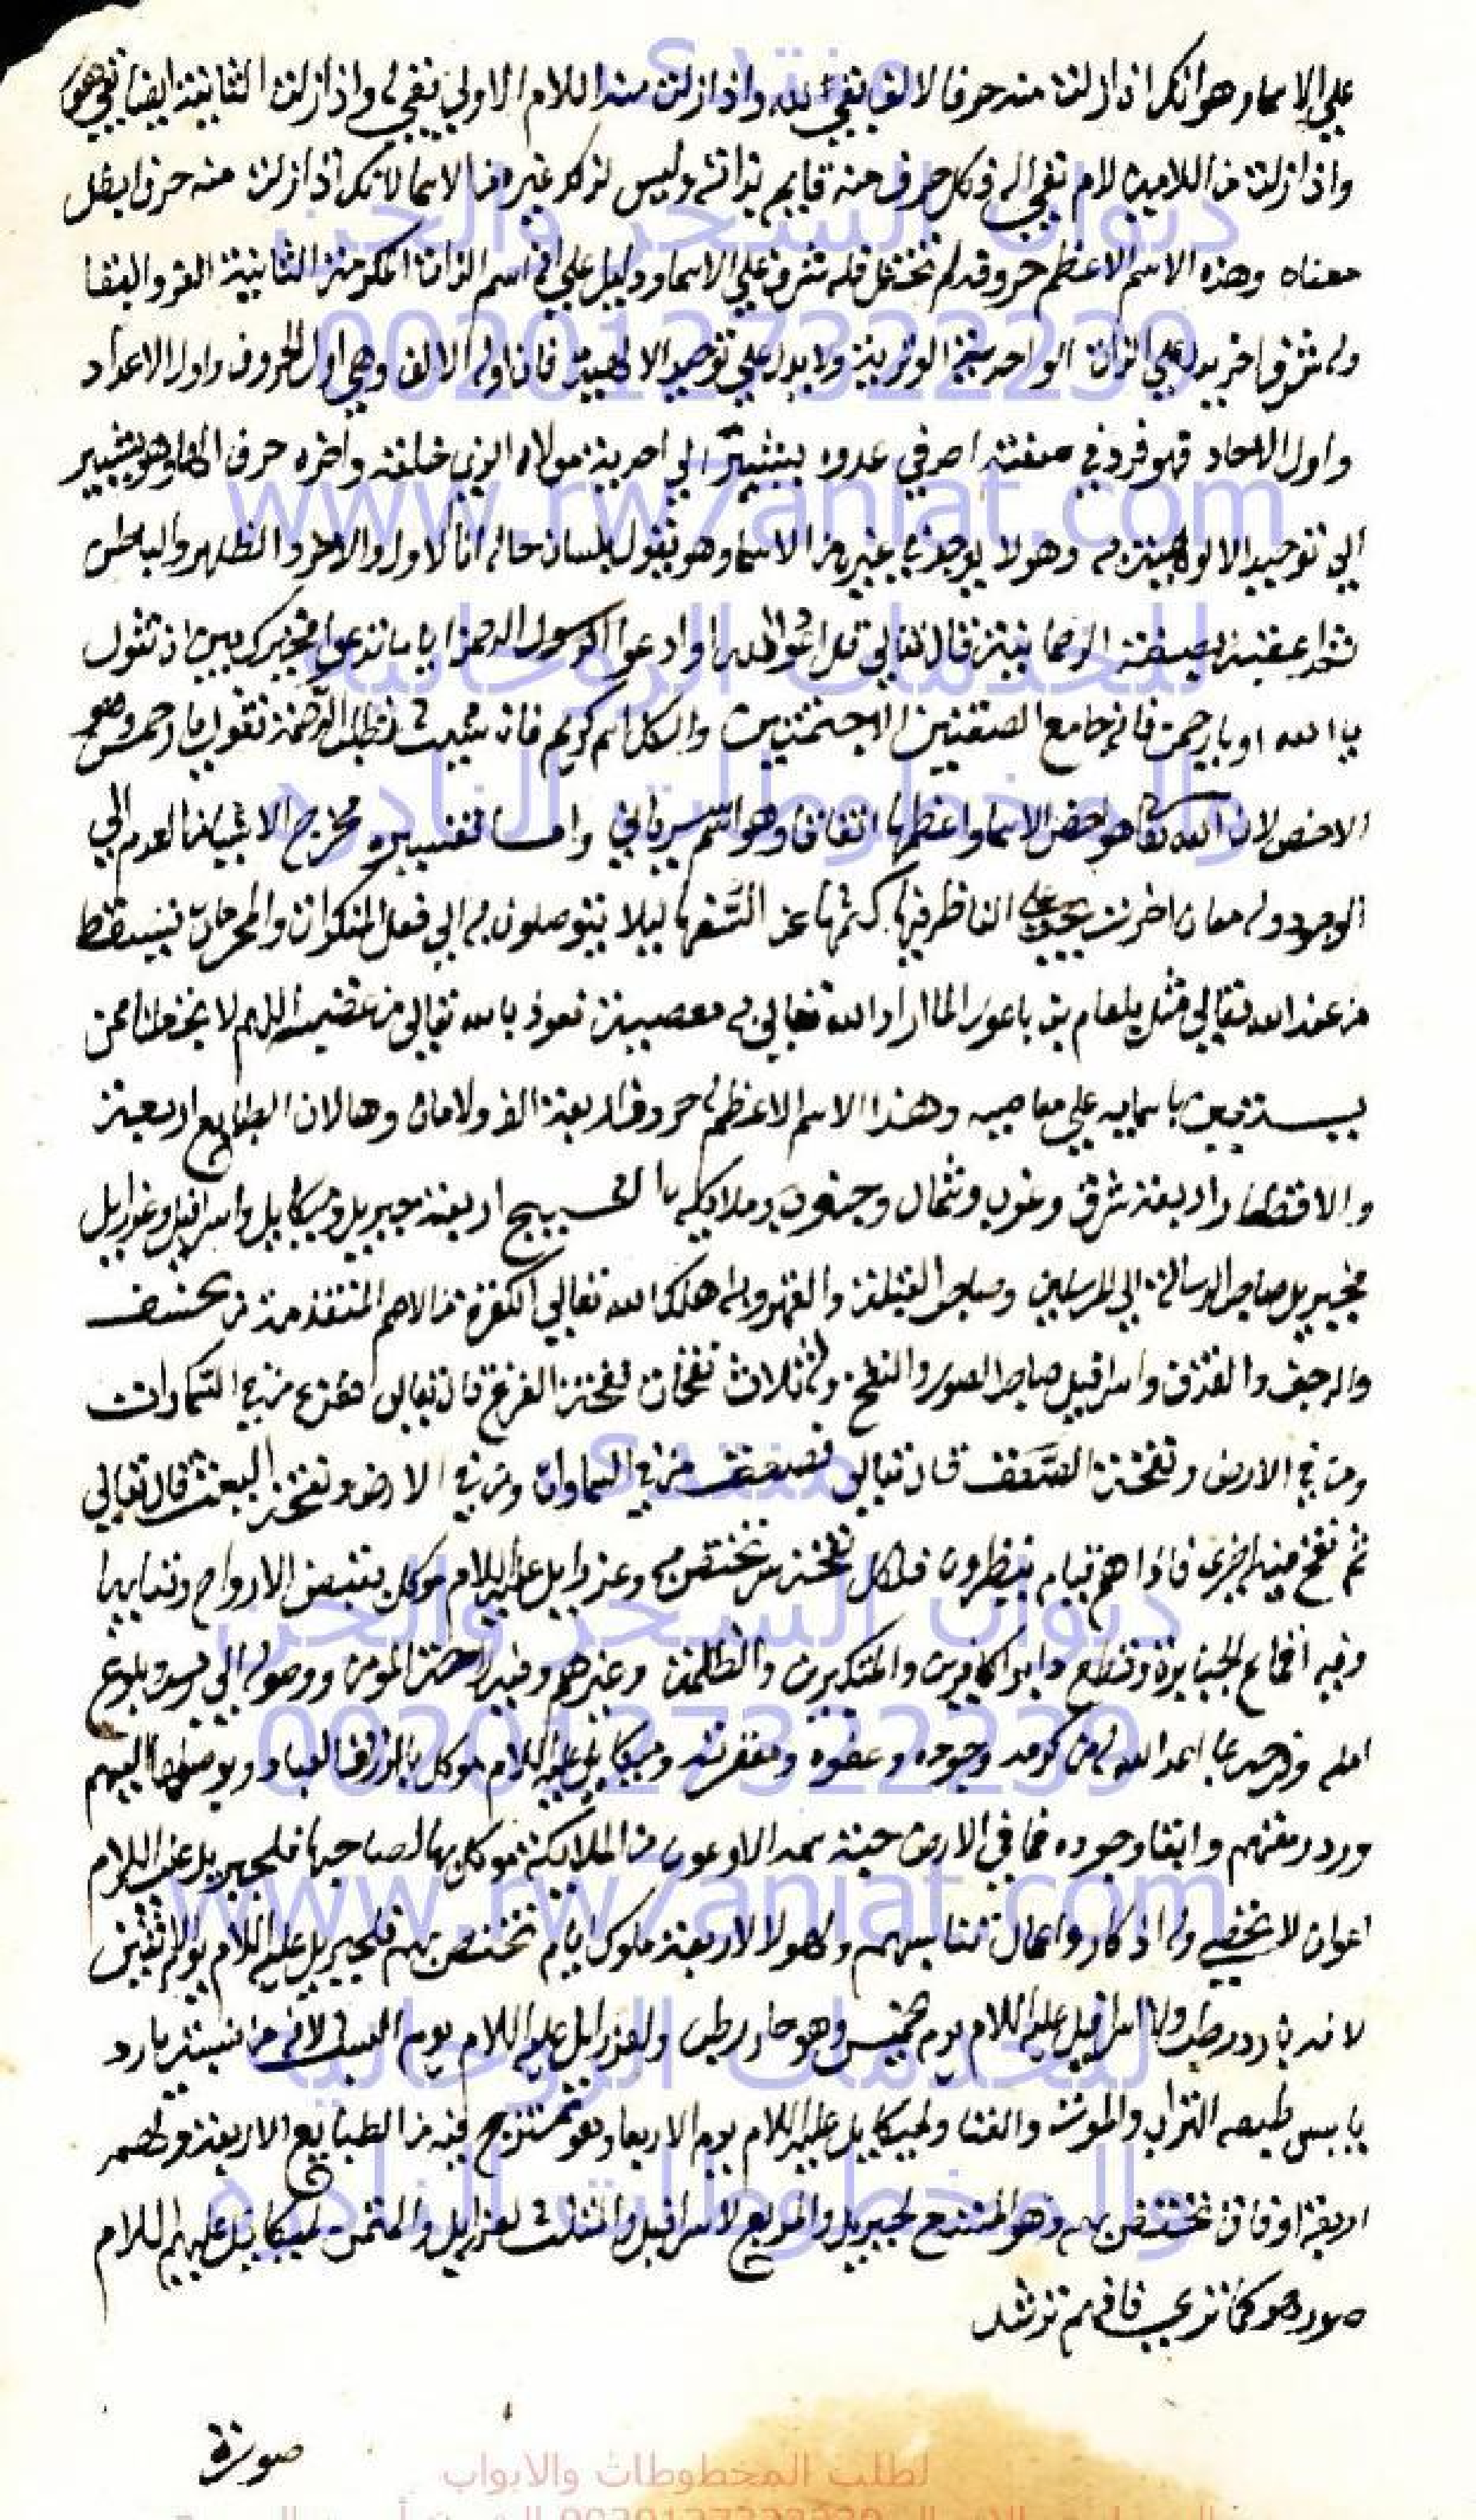 علي الاسما وهو انك اذا ازلت منه حرف الالف بقي لله واذا ازلت منه اللام الاولي بقي له واذا ازلت الثانية ايضا بقي هو
واذا ازلت من اللامين لام بقي اله فكل حرف منه قايم بذاته وليس لذكر غيره من الاسما لانك اذا ازلت منه حرف ابطل
معناه وهذه الاسم الاعظم حروفه لم تختل فله شرف علي الاسما ودليل علي انه اسم الذات المكرمة الثابتة العز والبقا
وله شرف اخر يدل علي الذات الواحدية الوترية ولا يدل علي توحيد الالهية فان اوله الالف وهي اول الحروف واول الاعداد
واول الاحاد فهو فرد في صفته احد في عدده يشير الي احدية مولاه الذي خلقه واخره حرف الها وهو يشير
الي توحيد الالوهية له وهو لا يوجد في غيره من الاسما وهو يقول بلسان حاله انا الاول والاخر والظاهر والباطن
الرحمانية قال تعالي قل ادعوا الله او ادعوا الرحمن ايا ما تدعوا بين ان تقول
يا الله او يا رحمن فانه جامع الصفتين والكل اسم كريم فان شيت تطلب الرحمة تقول يا رحمن وهو
الاخص لان الله تعالي هو اخص الاسما واعظمها اتفاقا وهو اسم سرياني واما تفسيره مخرج الاشيا من العدم الي
الوجود وله معان اخر الناظر فيها كتمها عن السفها ليلا يتوصلون به الي فعل المنكرات والمحرمات فيسقط
من عند الله تعالي مثل بلعام بن باعورا لما اراد الله تعالي به معصيته نعوذ بالله تعالي من غضبه اللهم لا تجعلنا ممن
يستعين باسمايه علي معاصيه وهذا الاسم الاعظم له حروف اربعة الف ولامان وها لان الطبايع اربعة
والاقطار اربعة شرق وغرب وشمال وجنوب وملايكة التسبيح اربعة جبريل وميكاييل واسرافيل وعزراييل
فجبريل صاحب الرسالة الي المرسلين وصاحب الغلظة والقهر وبه اهلك الله تعالي الكفرة من الامم المتقدمة من خسف
والرجف والقذف واسرافيل صاحب الصور والنفخ وله ثلاث نفخات نفخة الفزع قال تعالي ففزع من في السماوات
ومن في الارض ونفخة الصعق قال تعالي فصعق من في السماوات ومن في الارض ونفخة البعث قال تعالي
ثم نفخ فيه اخري فاذا هم قيام ينظرون فلكل نفخة سر تختص به وعزراييل عليه السلام موكل بقبض الارواح
وفيه اقماع الجبابرة وقطع دابر الكافرين والمتكبرين والظلمة وغيرهم وفيه راحة المومن ووصوله الي وبلوغ
امله وفرحه بما اعد الله له من كرمه وجوده وعفوه ومغفرته وميكاييل عليه السلام موكل بارزاق العباد ويوصلها اليهم
ورد رمقهم وابقا وجوده فما في الارض حبة الا وعون من الملايكة موكل بها لصاحبها فلجبريل عليه السلام
اعوان لا تحصي وله اذكار واعمال تناسبهم ولهولا الاربعة ملوك ايام تختص بهم فلجبريل عليه السلام يوم الاثنين
لانه بارد رطب ولاسرافيل عليه السلام يوم الخميس وهو حار رطب ولعزراييل عليه السلام يوم السبت لانه من نسبته بارد
يابس طبعه التراب والموت والفنا ولميكاييل عليه السلام يوم الاربعا وهو ممتزج فيه من الطبايع الاربعة ولهم
اربعة اوفاق تختص بهم وهو المتسع لجبريل والمربع لاسرافيل والمثلث لعزراييل والمثمن لميكاييل عليهم السلام
وهو كما تري فافهم ترشد
صورة